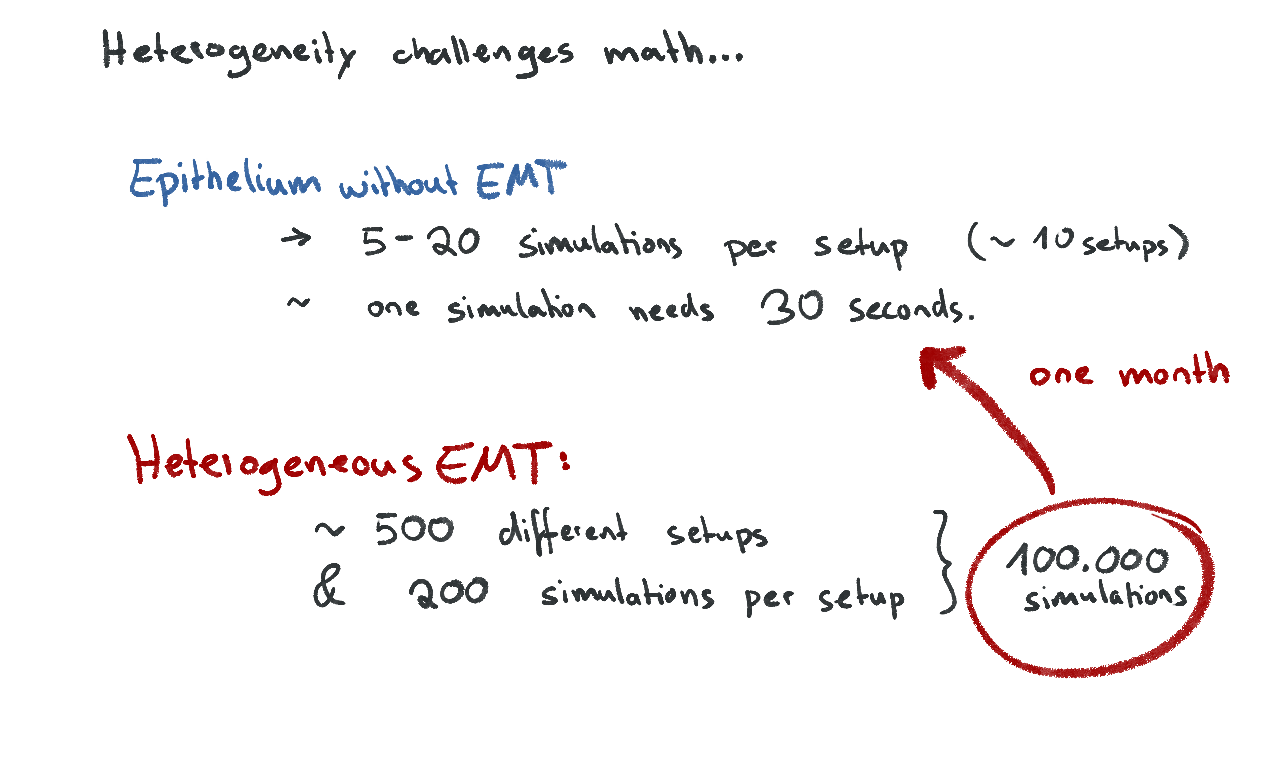 Heterogeneity challenges math...
Epithelium without EMT
→ 5-20 simulations per setup (~ 10 setups)
~ one simulation needs 30 seconds.
one month
Heterogeneous EMT:
~ 500 different setups
& 200 simulations per setup
100.000
simulations